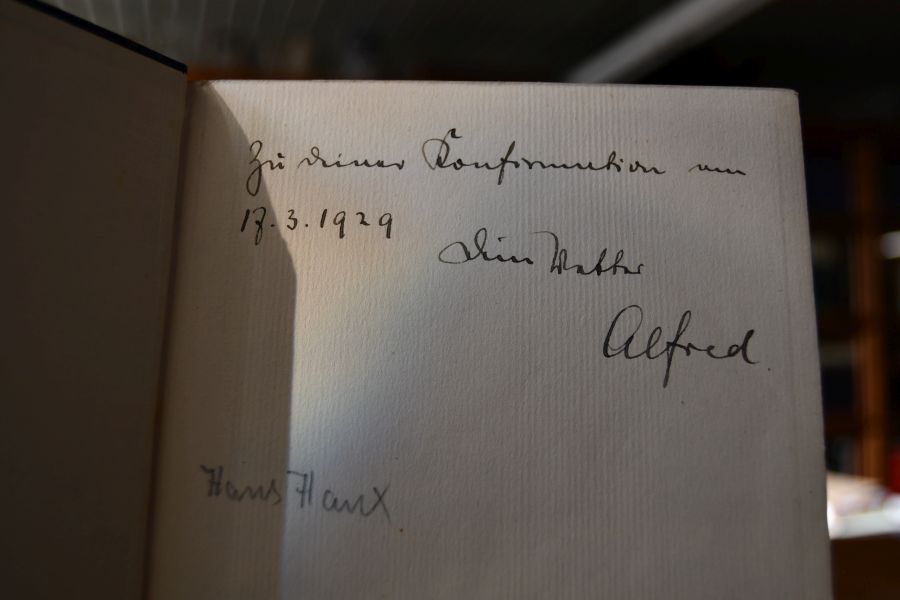 Zu deiner Konfirmation am
17.3.1929
Dein Vetter
Alfred
Hans Haux